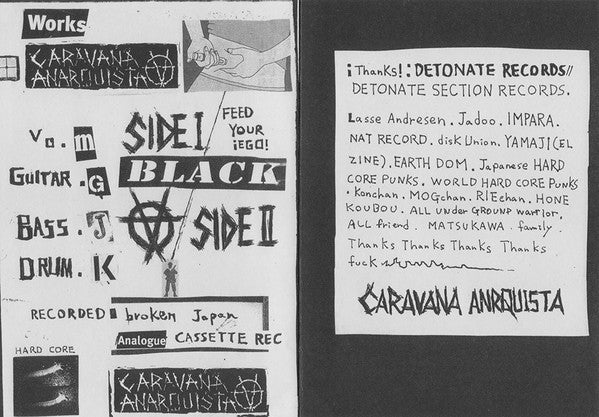 Works
CARAVANA
ANARQUISTA
Vo. m
GUITAR. G
BASS. J
DRUM. K
SIDE I
FEED
YOUR
¡EGO!
BLACK
SIDE II
RECORDED broken Japan
Analogue CASSETTE REC
HARD CORE
CARAVANA
ANARQUISTA
¡Thanks!: DETONATE RECORDS//
DETONATE SECTION RECORDS.
Lasse Andresen. Jadoo. IMPARA.
NAT RECORD. disk Union. YAMAJI(EL
ZINE). EARTH DOM. Japanese HARD
CORE PUNKS. WORLD HARD CORE PUNKS
. Konchan. MOGchan. RIEchan. HONE
KOUBOU. ALL UNDER GROUND warrior.
ALL friend. MATSUKAWA. family.
Thanks Thanks Thanks Thanks
fuck
CARAVANA ANRQUISTA